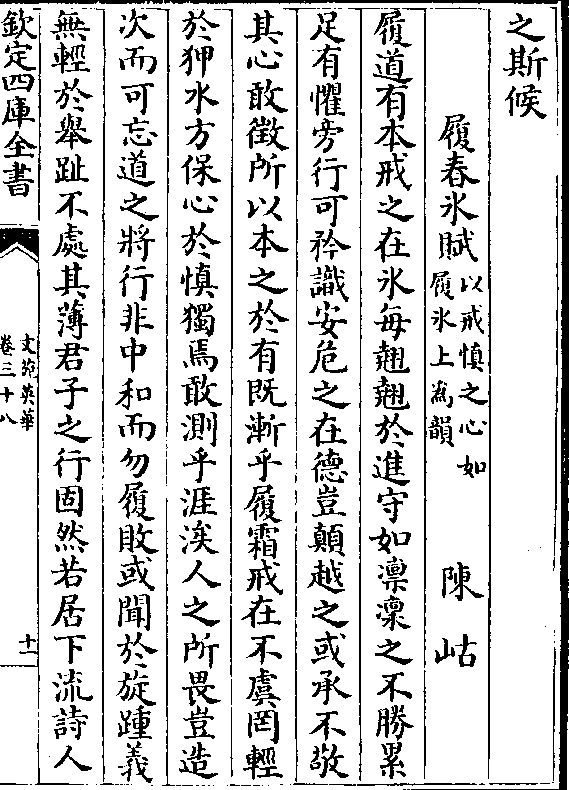 之斯候
履春氷賦以戒慎之心如履氷上為韻 陳岵
履道有本戒之在氷每翹翹於進守如凛凛之不勝累
足有懼旁行可矜識安危之在德豈顛越之或承不敬
其心敢徴所以本之於有既漸乎履霜戒在不虞罔輕
於狎水方保心於慎獨焉敢測乎涯涘人之所畏豈造
次而可忘道之將行非中和而勿履敗或聞於旋踵義
無輕於舉趾不處其薄君子之行固然若居下流詩人
欽定四庫全書
文苑英華
卷三十八
十一